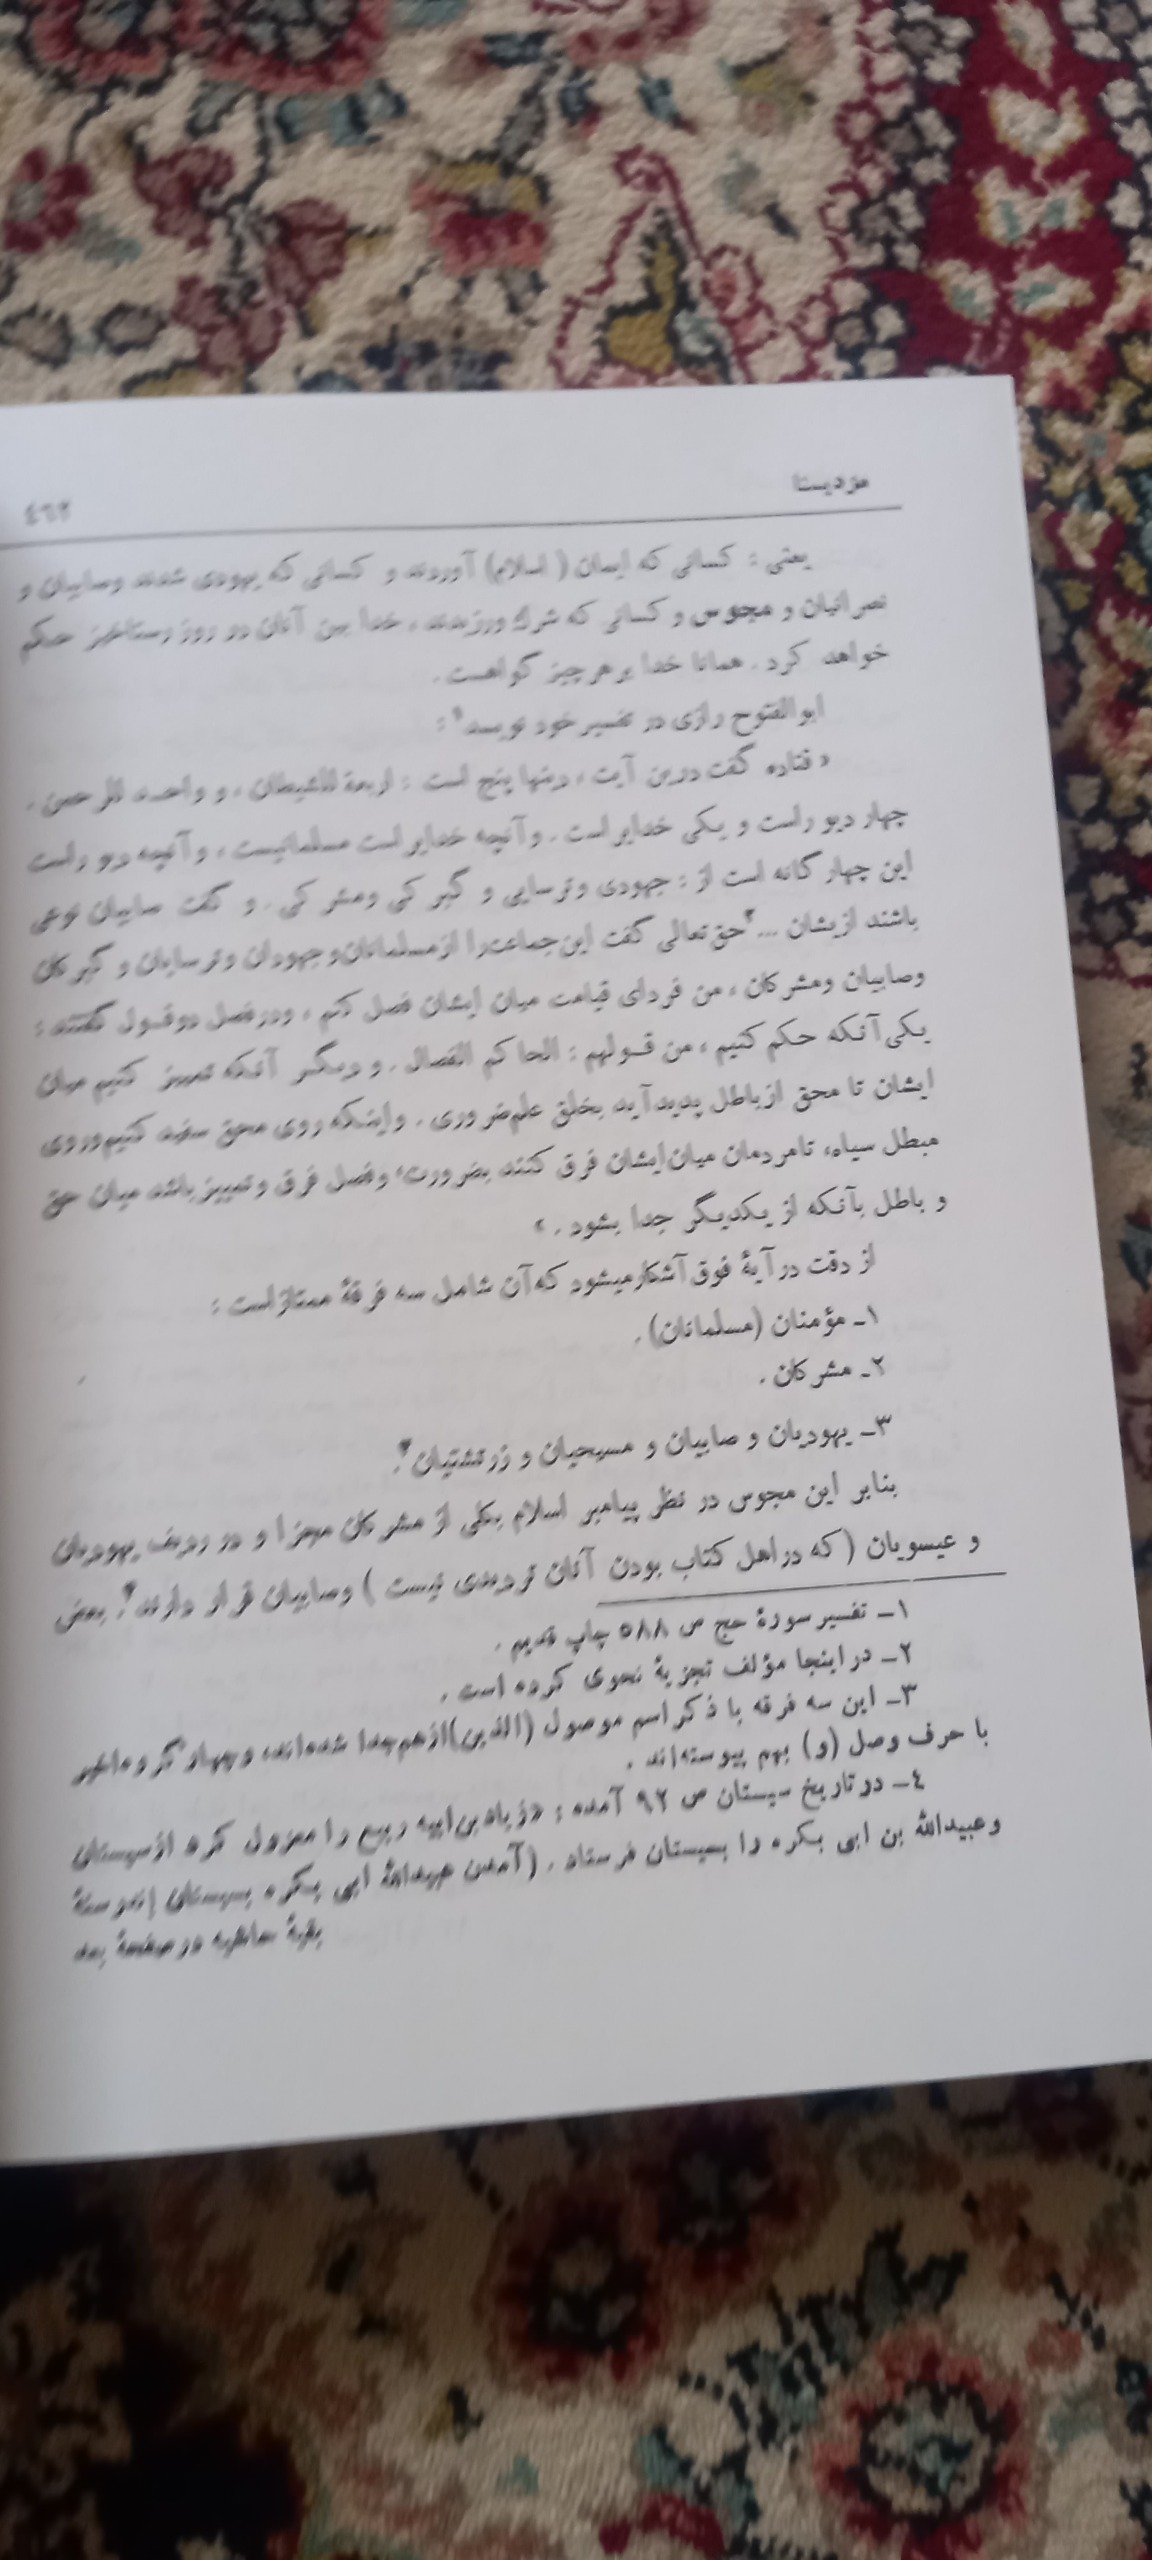 مزدیسنا
٤٦٢
یعنی : کسانی که ایمان ( اسلام) آوردند و کسانی که یهودی شدند وصابیان و
نصرانیان و مجوس و کسانی که شرك ورزیدند ، خدا بین آنان در روز رستاخیز حکم
خواهد کرد . همانا خدا بر هر چیز گواهست .
ابوالفتوح رازی در تفسیر خود نویسد۱ :
« قتاده گفت درین آیت ، دینها پنج است : اربعة للشیطان ، و واحد للرحمن .
چهار دیو راست و یکی خدایراست . و آنچه خدایراست مسلمانیست ، و آنچه دیو راست
این چهار گانه است از : جهودی وترسایی و گبر کی ومشر کی . و گفت صابیان نوعی
باشند ازیشان ...۲ حق‌تعالی گفت این‌جماعت‌را ازمسلمانان‌وجهودان وترسایان و گبرکان
وصابیان ومشرکان ، من فردای قیامت میان ایشان فصل کنم ، ودرفصل دوقول گفتند :
یکی‌آنکه حکم کنیم ، من قولهم : الحاکم الفصال . و دیگر آنکه تمییز کنیم میان
ایشان تا محق ازباطل پدیدآید بخلق علم‌ضروری . واینکه روی محق سفید کنیم‌وروی
مبطل سیاه، تامردمان میان‌ایشان فرق کنند بضرورت، وفصل فرق وتمییزباشد میان حق
و باطل بآنکه از یکدیگر جدا بشود . »
از دقت درآیهٔ فوق آشکارمیشود که‌آن شامل سه فرقهٔ ممتازاست :
۱ـ مؤمنان (مسلمانان).
۲ـ مشرکان .
۳ـ یهودیان و صابیان و مسیحیان و زرتشتیان۳.
بنابر این مجوس در نظر پیامبر اسلام بکلی از مشرکان مجزا و در ردیف یهودیان
و عیسویان ( که دراهل کتاب بودن آنان تردیدی نیست ) وصابیان قرار دارند٤. بعض
۱ـ تفسیر سورهٔ حج ص ۵۸۸ چاپ قدیم .
۲ـ در اینجا مؤلف تجزیهٔ نحوی کرده است .
۳ـ این سه فرقه با ذکر اسم موصول (الذین)ازهم‌جدا شده‌اند، وچهار گروه‌اخیر
با حرف وصل (و) بهم پیوسته‌اند .
٤ـ در تاریخ سیستان ص ۹۲ آمده : «زیادبن‌ابیه ربیع را معزول کرد ازسیستان
وعبیداللّه بن ابی بکره را بسیستان فرستاد . (آمدن عبیداللّه ابی بکره بسیستان اندرسنهٔ
بقیهٔ حاشیه درصفحهٔ بعد